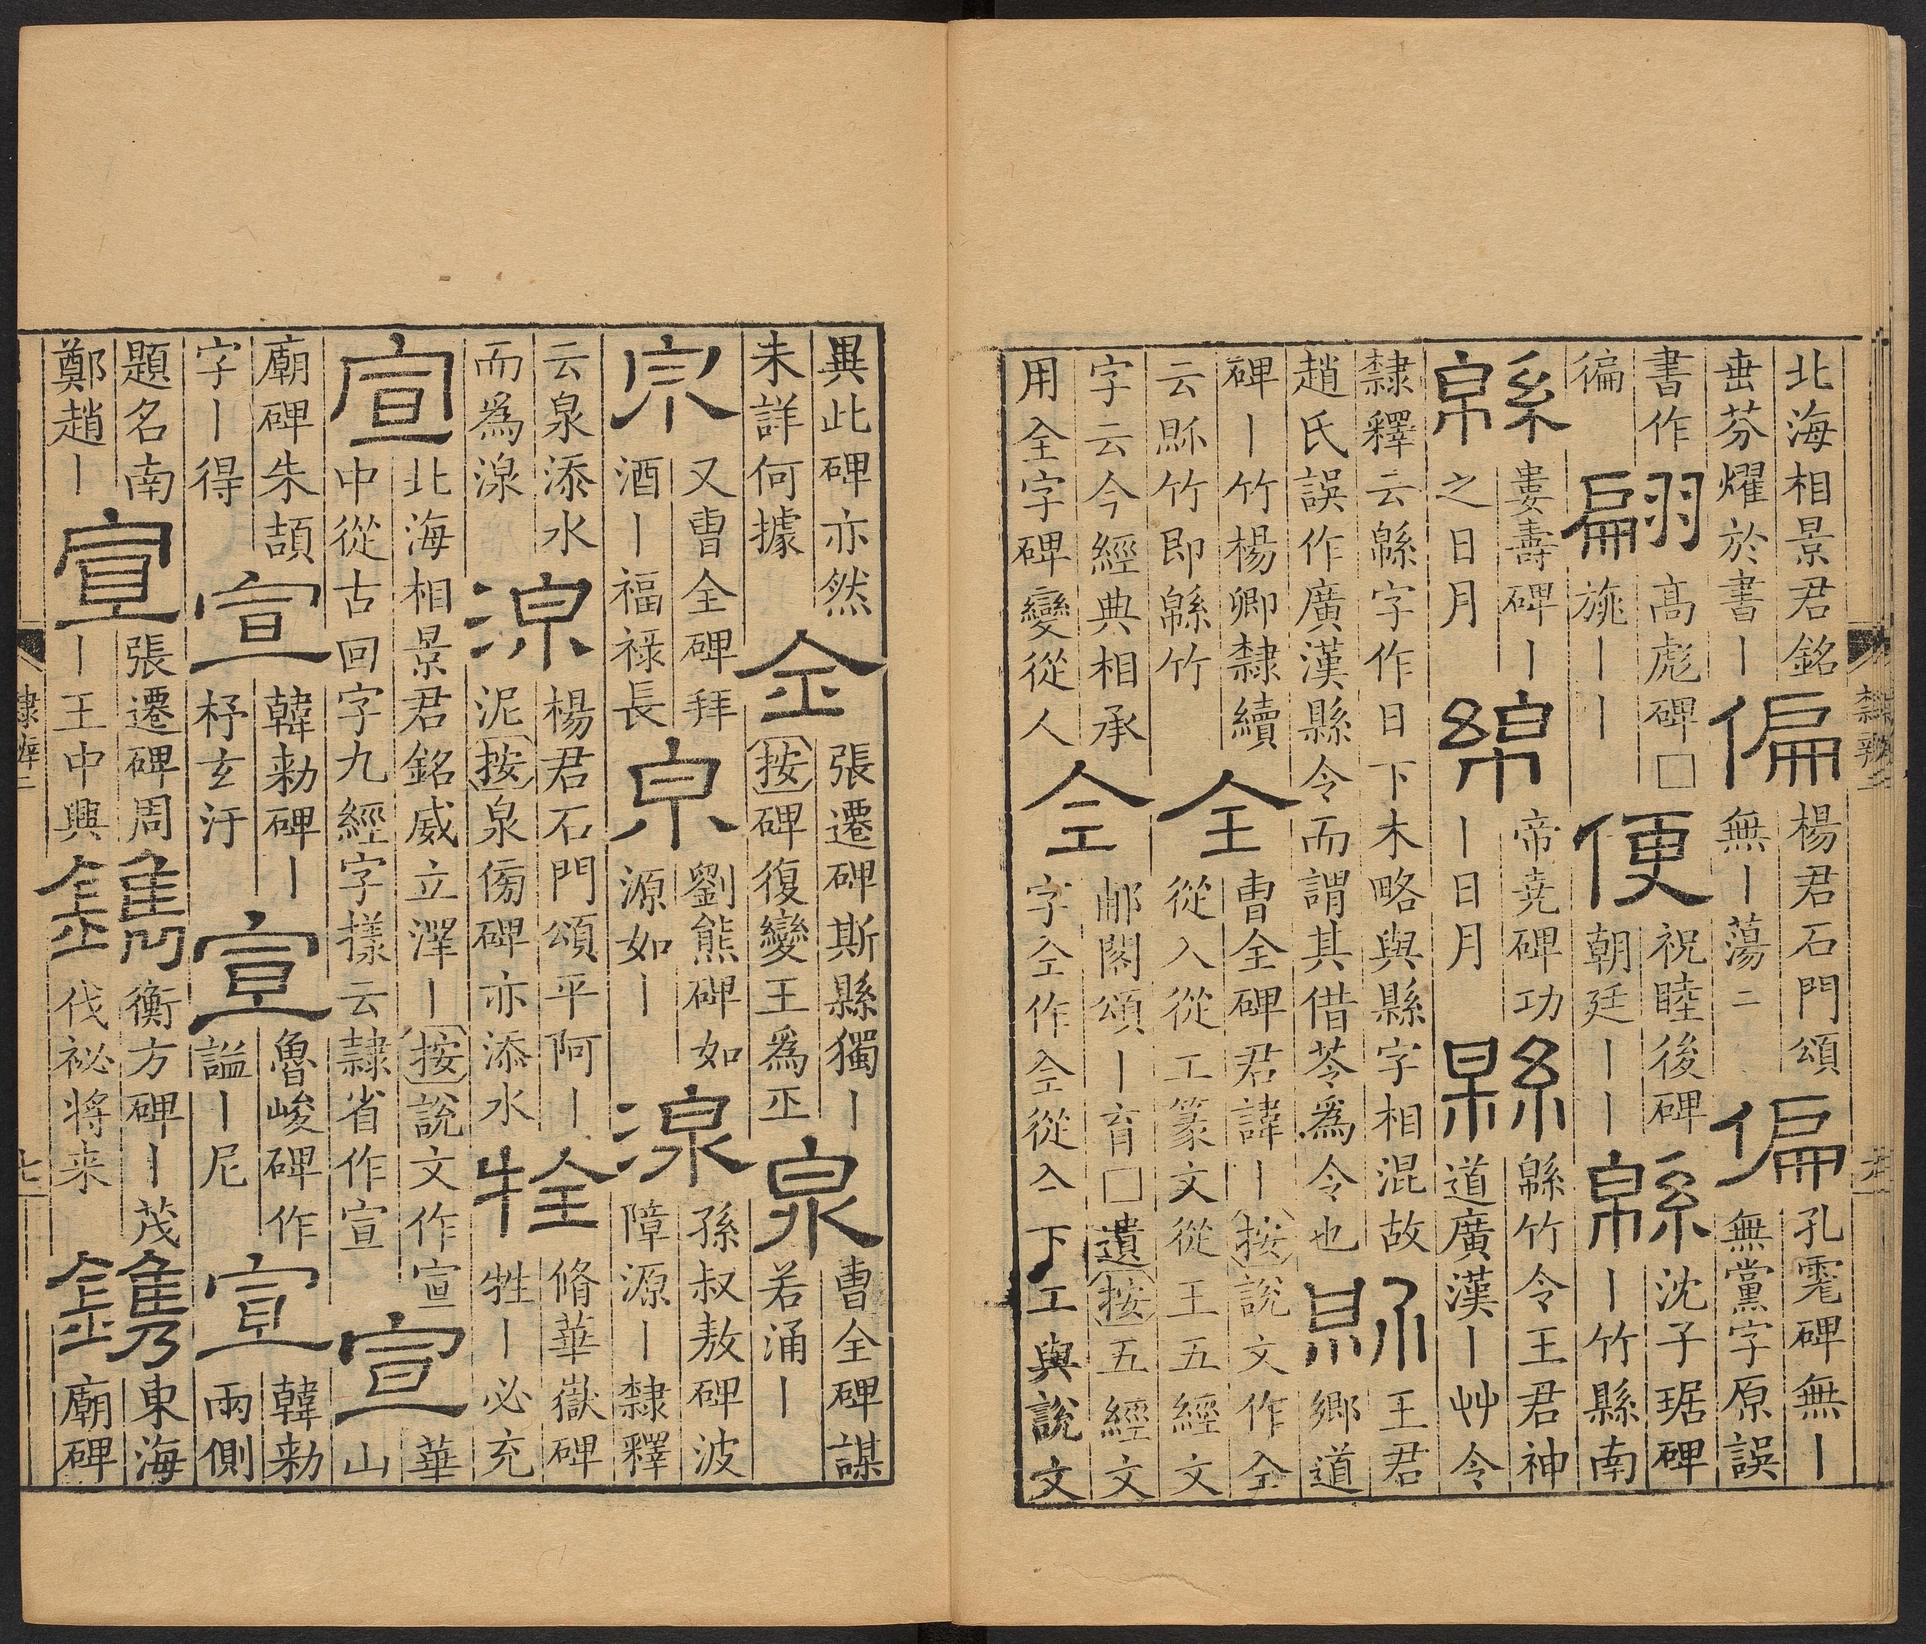 北海相景君銘
垂芬燿於書丨
偏
楊君石門頌
無丨蕩二
偏
孔䨲碑無丨
無黨字原誤
書作
徧
翩
高彪碑□
旐丨丨
便
祝睦後碑
朝廷丨丨
緜
沈子琚碑
丨竹縣南
緜
婁壽碑丨
之日月
綿
帝堯碑功
丨日月
緜
緜竹令王君神
道廣漢丨艸令
隸釋云緜字作日下木略與縣字相混故
趙氏誤作廣漢縣令而謂其借苓爲令也
王君
鄉道
碑丨竹楊卿隸續
云縣竹即緜竹
全
曹全碑君諱丨按說文作仝
從入從工篆文從王五經文
字云今經典相承
用全字碑變從人
仝
郙閣頌丨育□遺按五經文
字仝作仝從亼下工與說文
異此碑亦然
未詳何據
全
張遷碑斯縣獨丨
按碑復變王爲
泉
曹全碑謀
若涌丨
又曹全碑拜
酒丨福祿長
泉
劉熊碑如
源如丨
湶
孫叔敖碑波
障源丨隸釋
云泉添水
而爲湶
湶
楊君石門頌平阿丨
泥按泉傍碑亦添水
牷
脩華嶽碑
牲丨必充
宣
北海相景君銘威立澤丨按說文作宣
中從古回字九經字樣云隸省作宣
宣
華
山
廟碑朱頡
字丨得
宣
韓勑碑丨
杼玄汙
宣
魯峻碑作
謚丨尼
宣
韓勑
兩側
題名南
鄭趙丨
宣
張遷碑周
丨王中興
鐫
衡方碑丨茂
伐祕將来
鐫
東海
廟碑
隸辨二